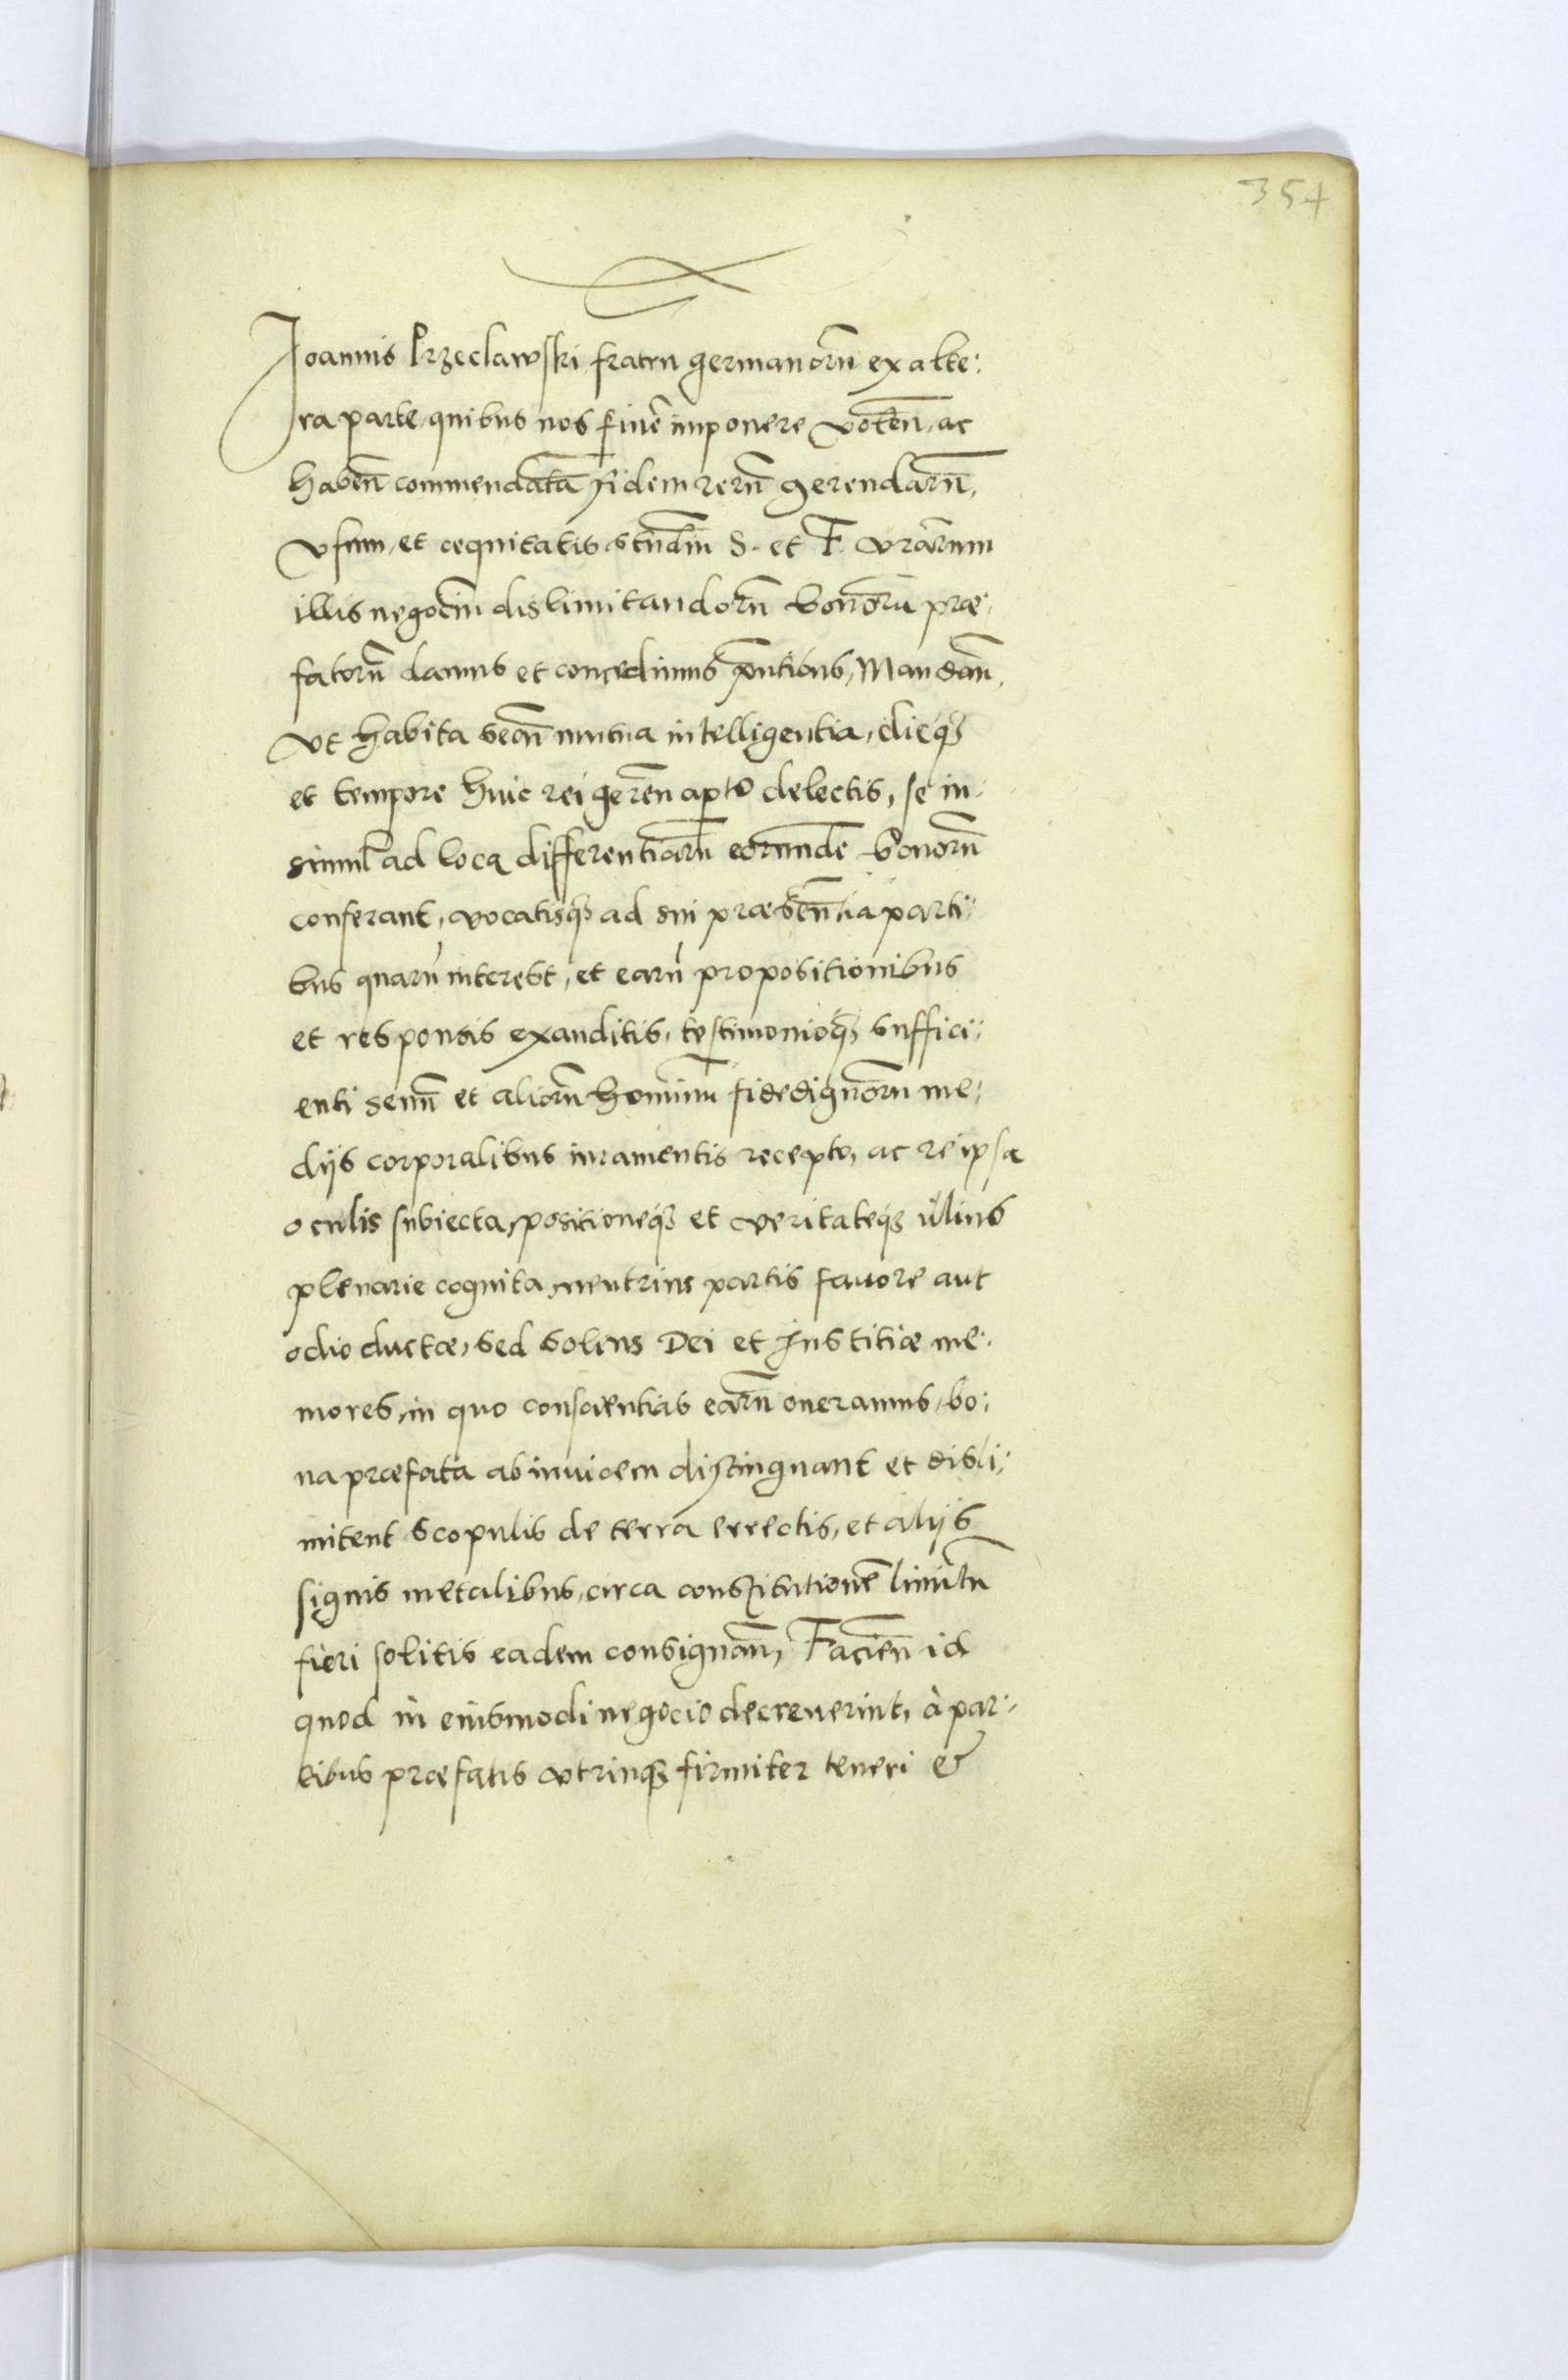 354
Joannis Przeclawski fratrū germanorū ex alte:
ra parte, quibus nos finē imponere volen̄, ac
haben̄ commendatā fidem rerū gerendarū,
vsum, et æquitatis studiū S. et F. vrārum
illis negociū dislimitandorū bonorū præ:
fatorū damus et concedimus pn̄tibus, Mandan̄,
vt habita secū mutua intelligentia, dieqꝫ
et tempore huic rei geren̄ apto delectis, se in:
simul ad loca differentiarū eorundē bonorū
conferant, vocatisqꝫ ad sui præsentiā parti:
bus quarū interest, et earū propositionibus
et responsis exauditis, testimonioqꝫ suffici:
enti senū et aliorū hominū fidedignorū me:
dijs corporalibus iuramentis recepto, ac re ipsa
oculis subiecta, positioneqꝫ et veritateqꝫ illius
plenarie cognita, neutrius partis fauore aut
odio ductæ, sed solius Dei et Iustitiæ me:
mores, in quo conscientias earū oneramus, bo:
na præfata ab inuicem distinguant et disli:
mitent scopulis de terra errectis, et alijs
signis metalibus, circa constitutionē limitū
fieri solitis eadem consignan̄, Facien̄ id
quod in eiusmodi negocio decreuerint, à par:
tibus præfatis vtrinqꝫ firmiter teneri &